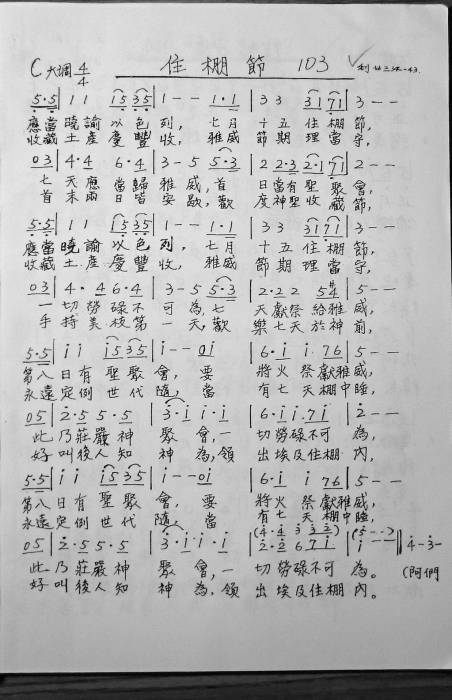 C大調 4/4 住棚節 103 ✓ 利廿三34-43
5·5 | 1 1 15 35 | 1 - - 1·1 | 3 3 31 71 | 3 - -
應當曉諭以色列,七月十五住棚節,
收藏土產慶豐收,雅威節期理當守,
03 | 4·4 6·4 | 3 - 5 5·3 | 2 2·3 2·1 71 | 2 - -
七天應當歸雅威,首日當有聖聚會,
首末兩日皆安歇,歡度神聖收藏節,
5·5 | 1 1 15 35 | 1 - - 1·1 | 3 3 31 71 | 3 - -
應當曉諭以色列,七月十五住棚節,
收藏土產慶豐收,雅威節期理當守,
03 | 4·4 6·4 | 3 - 5 5·3 | 2·2 2 5#4 | 5 - -
一切勞碌不可為,七天獻祭給雅威,
手持美枝第一天,歡樂七天於神前,
5·5 | i i i5 35 | i - - 0i | 6·i i·76 | 5 - -
第八日有聖聚會,要將火祭獻雅威,
永遠定例世代隨,當有七天棚中睡,
05 | 2·5 5·5 | 3·i i·i | 6·i i·7i | 2 - -
此乃莊嚴神聚會,一切勞碌不可為,
好叫後人知神為,領出埃及住棚內,
5·5 | i i i5 35 | i - - 0i | 6·i i76 | 5 - -
第八日有聖聚會,要將火祭獻雅威,
永遠定例世代隨,當有七天棚中睡,
(4·4 3 33 | (5 - -)
05 | 2·5 5·5 | 3·i i·i | 2·2 6 7i | i - - ‖ 4 - 3 -
此乃莊嚴神聚會,一切勞碌不可為。(阿們
好叫後人知神為,領出埃及住棚內。